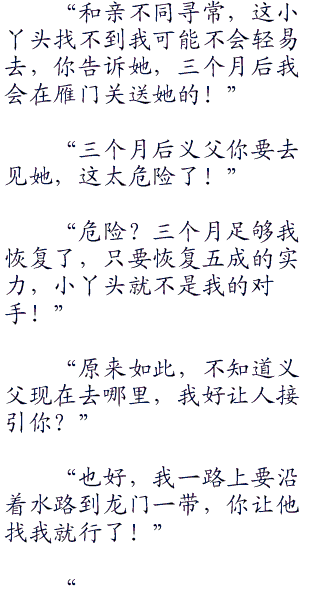 “和亲不同寻常，这小
丫头找不到我可能不会轻易
去，你告诉她，三个月后我
会在雁门关送她的！”
“三个月后义父你要去
见她，这太危险了！”
“危险？三个月足够我
恢复了，只要恢复五成的实
力，小丫头就不是我的对
手！”
“原来如此，不知道义
父现在去哪里，我好让人接
引你？”
“也好，我一路上要沿
着水路到龙门一带，你让他
找我就行了！”
“